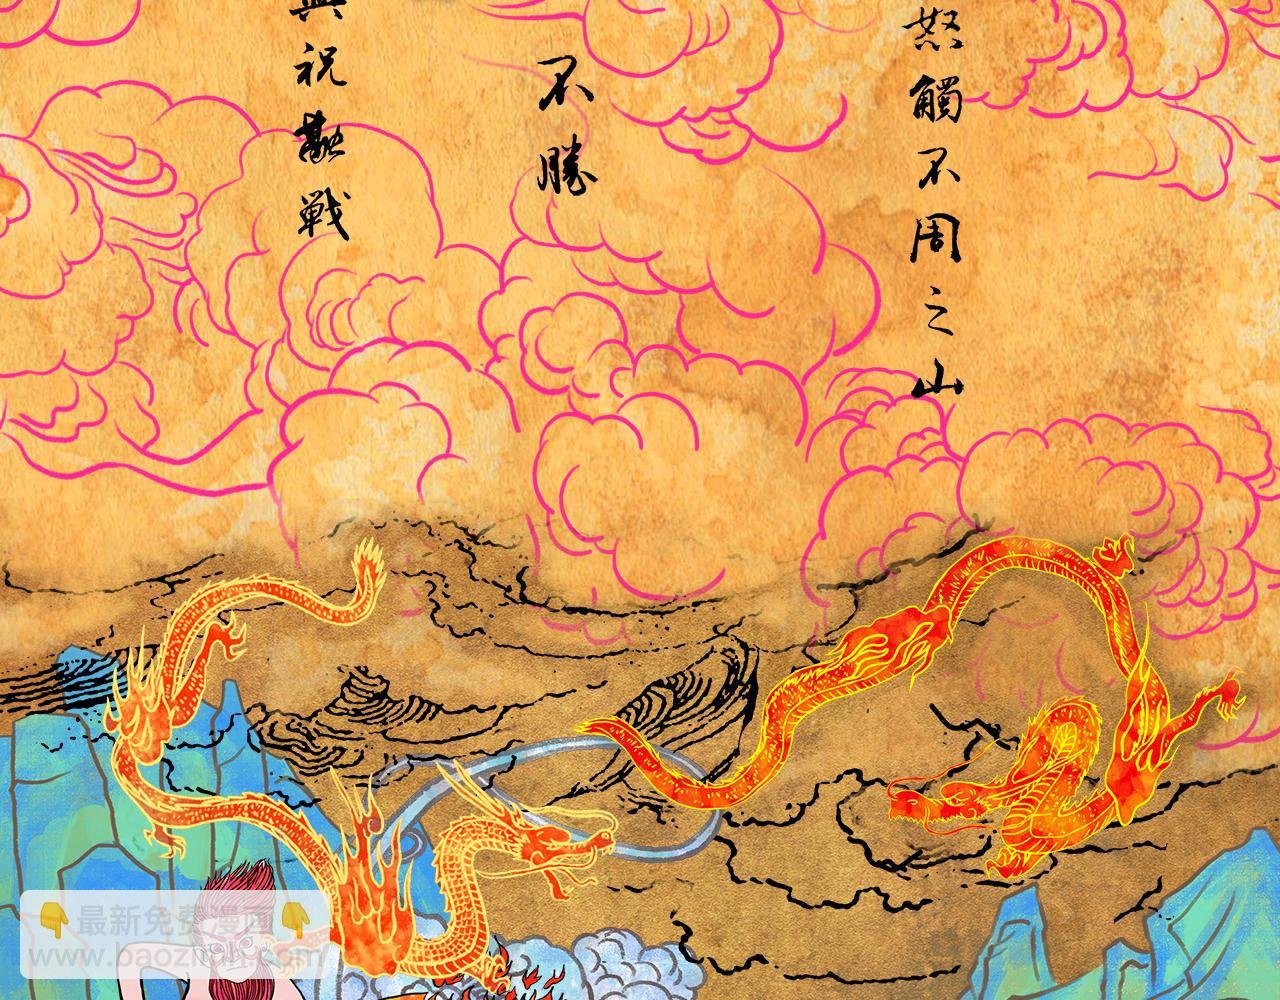 與祝融戰
不勝
怒觸不周之山
最新免费漫画
www.baozhi.com